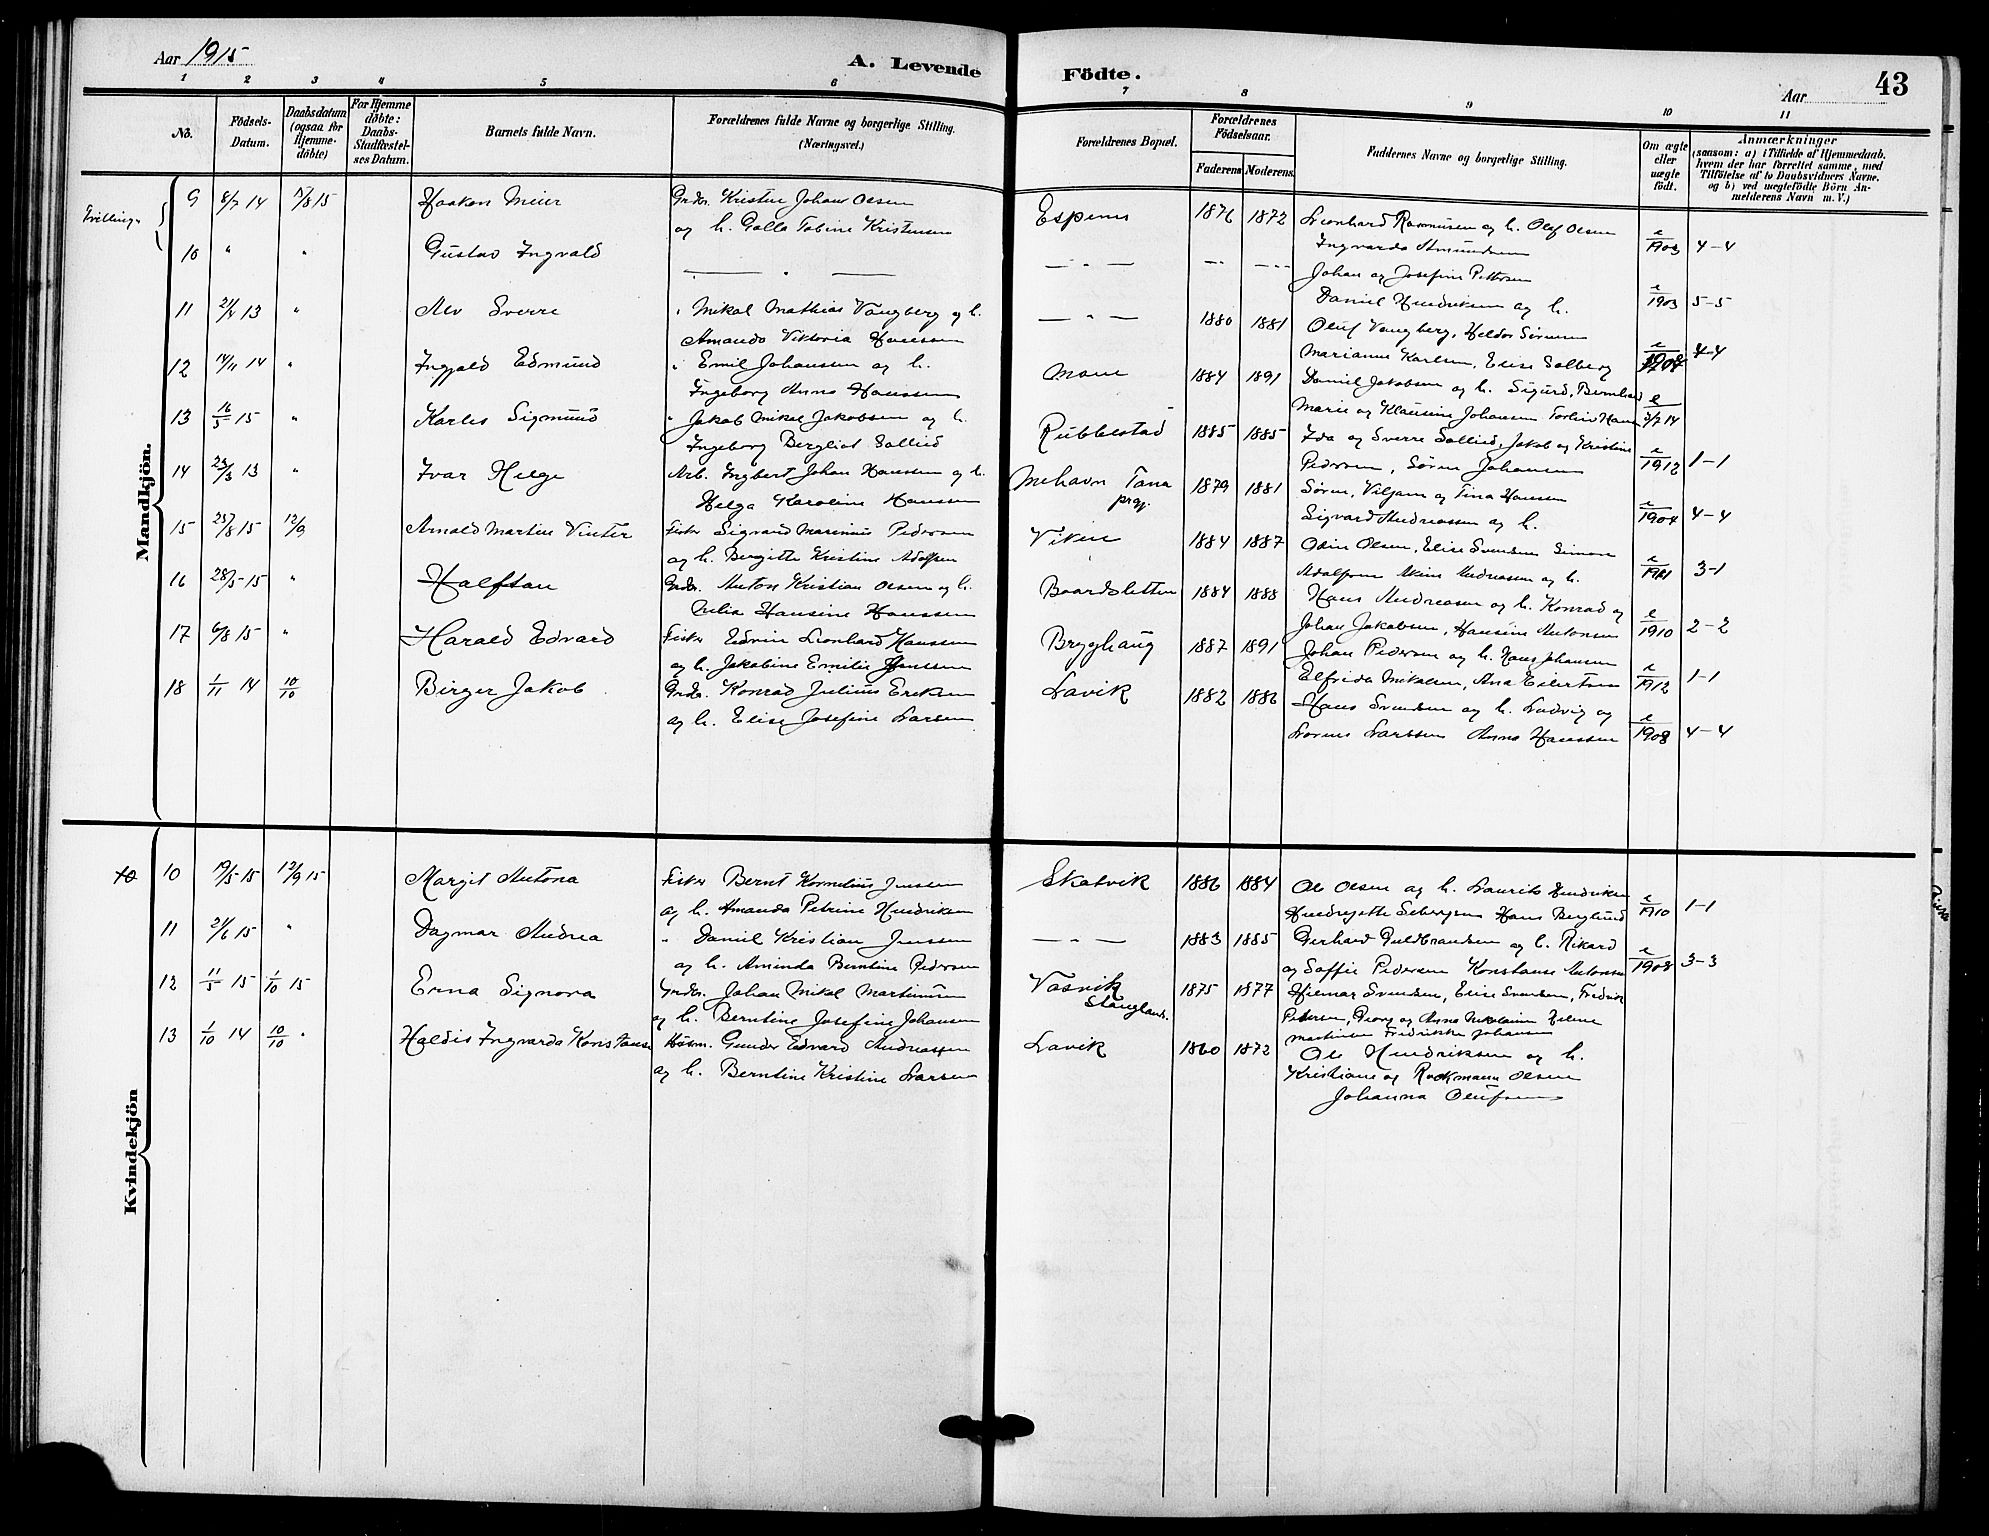 Aar 1915 A. Levende Födte. Aar 43
1 2 3 4 5 6 7 8 9 10 11
No.
Födsels-Datum.
Daabsdatum (ogsaa for Hjemme-döbte)
For Hjemme döbte: Daabs-Stadfæstel-ses Datum.
Barnets fulde Navn.
Forældrenes fulde Navne og borgerlige Stilling.
(Næringsvei.)
Forældrenes Bopæl.
Forældrenes Födselsaar.
Faderens Moderens.
Faddernes Navne og borgerlige Stilling.
Om ægte eller uægte födt.
Anmærkninger
(saasom: a) i Tilfælde af Hjemmedaab, hvem der har forrettet samme, med Tilföielse af to Daabsvidners Navne, og b) ved uægtefödte Börn An-melderens Navn m. V.)
Mandkjön.
Tvillinger
9 8/7 14 1/8 15 Haakon Meier Grdbr. Kristen Johan Olsen Espenes 1876 1872 Leonhard Rasmussen og h. Olaf Olsen
og h. Galla Tobine Kristensen Ingvarda Amundsen e 1903 4-4
10 " " Gustav Ingvald — " — — " — — — Johan og Josefine Pettersen
Daniel Hendriksen og h. e 1903 5-5
11 2/4 13 " Alv Sverre " Mikal Mathias Vangberg og h. — " — 1880 1881 Oluf Vangberg, Heldor Sörensen
Amanda Viktoria Hanssen Marianne Karlsen, Elise Solberg e 1908 4-4
12 14/11 14 " Ingjald Edmund " Emil Johansen og h. Moen 1884 1891 Daniel Jakobsen og h. Sigurd, Bernhard
Ingeborg Anna Hanssen Marie og Klausine Johansen e 3/7 14
13 16/5 15 " Karles Sigmund " Jakob Mikal Jakobsen og h. Rubbestad 1885 1885 Ida og Sverre Sollied, Jakob og Kristine
Ingeborg Bergliot Sollied Pedersen, Sören Johansen e 1912 1-1
14 23/3 13 " Ivar Helge Arb. Ingbert Johan Hanssen og h. Mehavn Tana prgj. 1879 1881 Sören, Viljam og Tina Hanssen
Helga Karoline Hanssen Sigvard Andreassen og h. e 1904 4-4
15 25/8 15 12/9 Arnald Martin Vinter Fisker Sigvard Marenius Pedersen Viken 1884 1887 Odin Olsen, Elise Svendsen Simon
og h. Bergitte Kristine Adolfsen Adolfsen og h. e 1911 3-1
16 28/5 15 " Halftan Grdbr. Anton Kristian Olsen og h. Baardsletten 1884 1888 Hans Andreasen og h. Konrad og
Julia Hansine Hanssen Johan Jakobsen, Hansine Antonsen e 1910 2-2
17 6/8 15 " Harald Edvard Fisker Edvin Leonhard Hanssen Brygghaug 1887 1891 Johan Pedersen og h. Hans Johansen
og h. Jakobine Emilie Hanssen Elfrida Mikalsen, Ana Eilertsen e 1912 1-1
18 1/11 14 10/10 Birger Jakob Grdbr. Konrad Julius Eriksen Lavik 1882 1886 Hans Svendsen og h. Ludvig og
og h. Elise Josefine Larsen Lorens Larssen Anna Hanssen e 1908 4-4
Kvindekjön
10 10 19/5 15 12/9 15 Margit Antona Fisker Bernt Kornelius Jenssen Skatvik 1886 1884 Ole Olsen og h. Laurits Hendriksen
og h. Amanda Petrine Hendriksen Hans Berglund e 1910 1-1
11 2/6 15 " Dagmar Andrea " Daniel Kristian Jenssen — " — 1883 1885 Gerhard Guldbrandsen og h. Rikard
og h. Aminda Berntine Pedersen og Soffie Pedersen Konstanse Antonsen e 1908 3-3
12 11/5 15 1/10 15 Erna Signora Grdbr. Johan Mikal Martinsen Vasvik Stangland. 1875 1877 Hilmar Svendsen, Elise Svendsen, Fredrik
og h. Berntine Josefine Johansen Petersen, Georg og Anna Nikolaisen
Martinsen Fredrikke Johansen
13 1/10 14 10/10 " Haldis Ingvarda Konstanse Husm. Gunder Edvard Andreassen Lavik 1860 1872 Ole Hendriksen og h.
og h. Berntine Kristine Larsen Kristiane og Rockmann Olsen
Johanna Olufsen